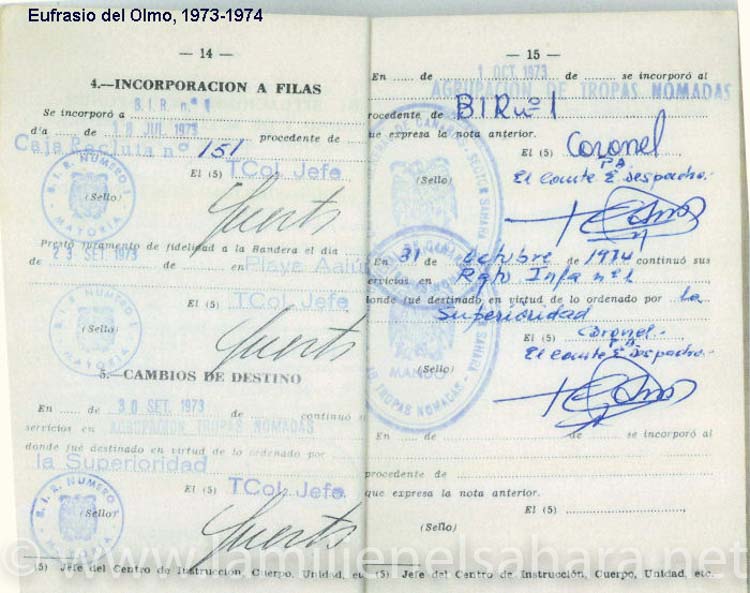 Eufrasio del Olmo, 1973-1974
— 14 —
4.—INCORPORACION A FILAS
Se incorporó a B.I.R. nº 1
día de 18 JUL 1973 procedente de
Caja Recluta nº 151
El (5) TCol. Jefe.
(Sello)
B.I.R. NUMERO 1
MAYORIA
Prestó juramento de fidelidad a la Bandera el día
de 23 SET. 1973 de en Playa Aaiún
El (5) TCol Jefe
(Sello)
B.I.R. NUMERO 1
MAYORIA
5.—CAMBIOS DE DESTINO
En de 30 SET. 1973 de continuó su
servicios en AGRUPACION TROPAS NOMADAS
donde fué destinado en virtud de lo ordenado por
la Superioridad
El (5) TCol. Jefe.
(Sello)
B.I.R. NUMERO
(5) Jefe del Centro de Instrucción, Cuerpo, Unidad, etc
— 15 —
En de 1 OCT. 1973 de se incorporó al
AGRUPACION DE TROPAS NOMADAS
procedente de BIR nº 1
que expresa la nota anterior.
El (5) Coronel
P.A.
(Sello)
El Comte E. Despacho.
SECTOR SAHARA
En 31 de octubre de 1974 continuó sus
servicios en Rgto Infa nº 1
donde fué destinado en virtud de lo ordenado por la
Superioridad
El (5) Coronel.
P.A.
El Comte E. Despacho.
(Sello)
MANDO
TROPAS NOMADAS
En de de se incorporó al
procedente de
que expresa la nota anterior.
El (5)
(Sello)
(5) Jefe del Centro de Instrucción, Cuerpo, Unidad, etc.
© www.lamilienelsahara.net